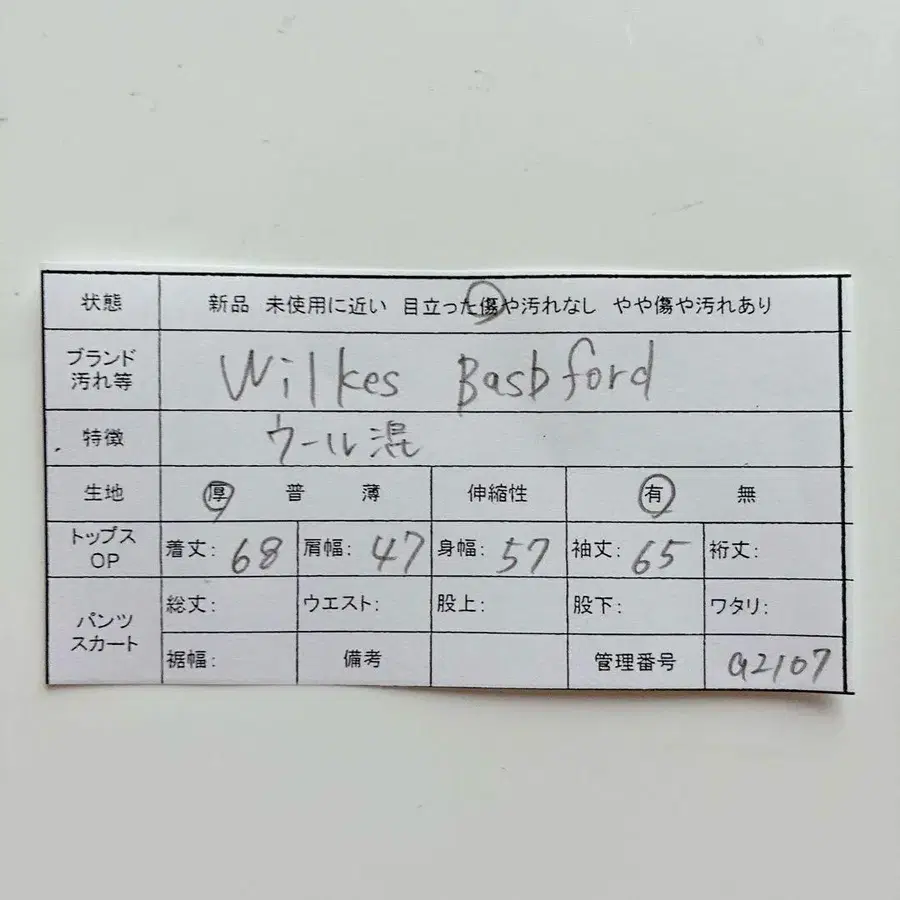 状態 新品 未使用に近い 目立った傷や汚れなし やや傷や汚れあり
ブランド
汚れ等
Wilkes Basbford
特徴 ウール混
生地 厚 普 薄 伸縮性 有 無
トップス
OP
着丈: 68 肩幅: 47 身幅: 57 袖丈: 65 裄丈:
パンツ
スカート
総丈: ウエスト: 股上: 股下: ワタリ:
裾幅: 備考 管理番号 a2107